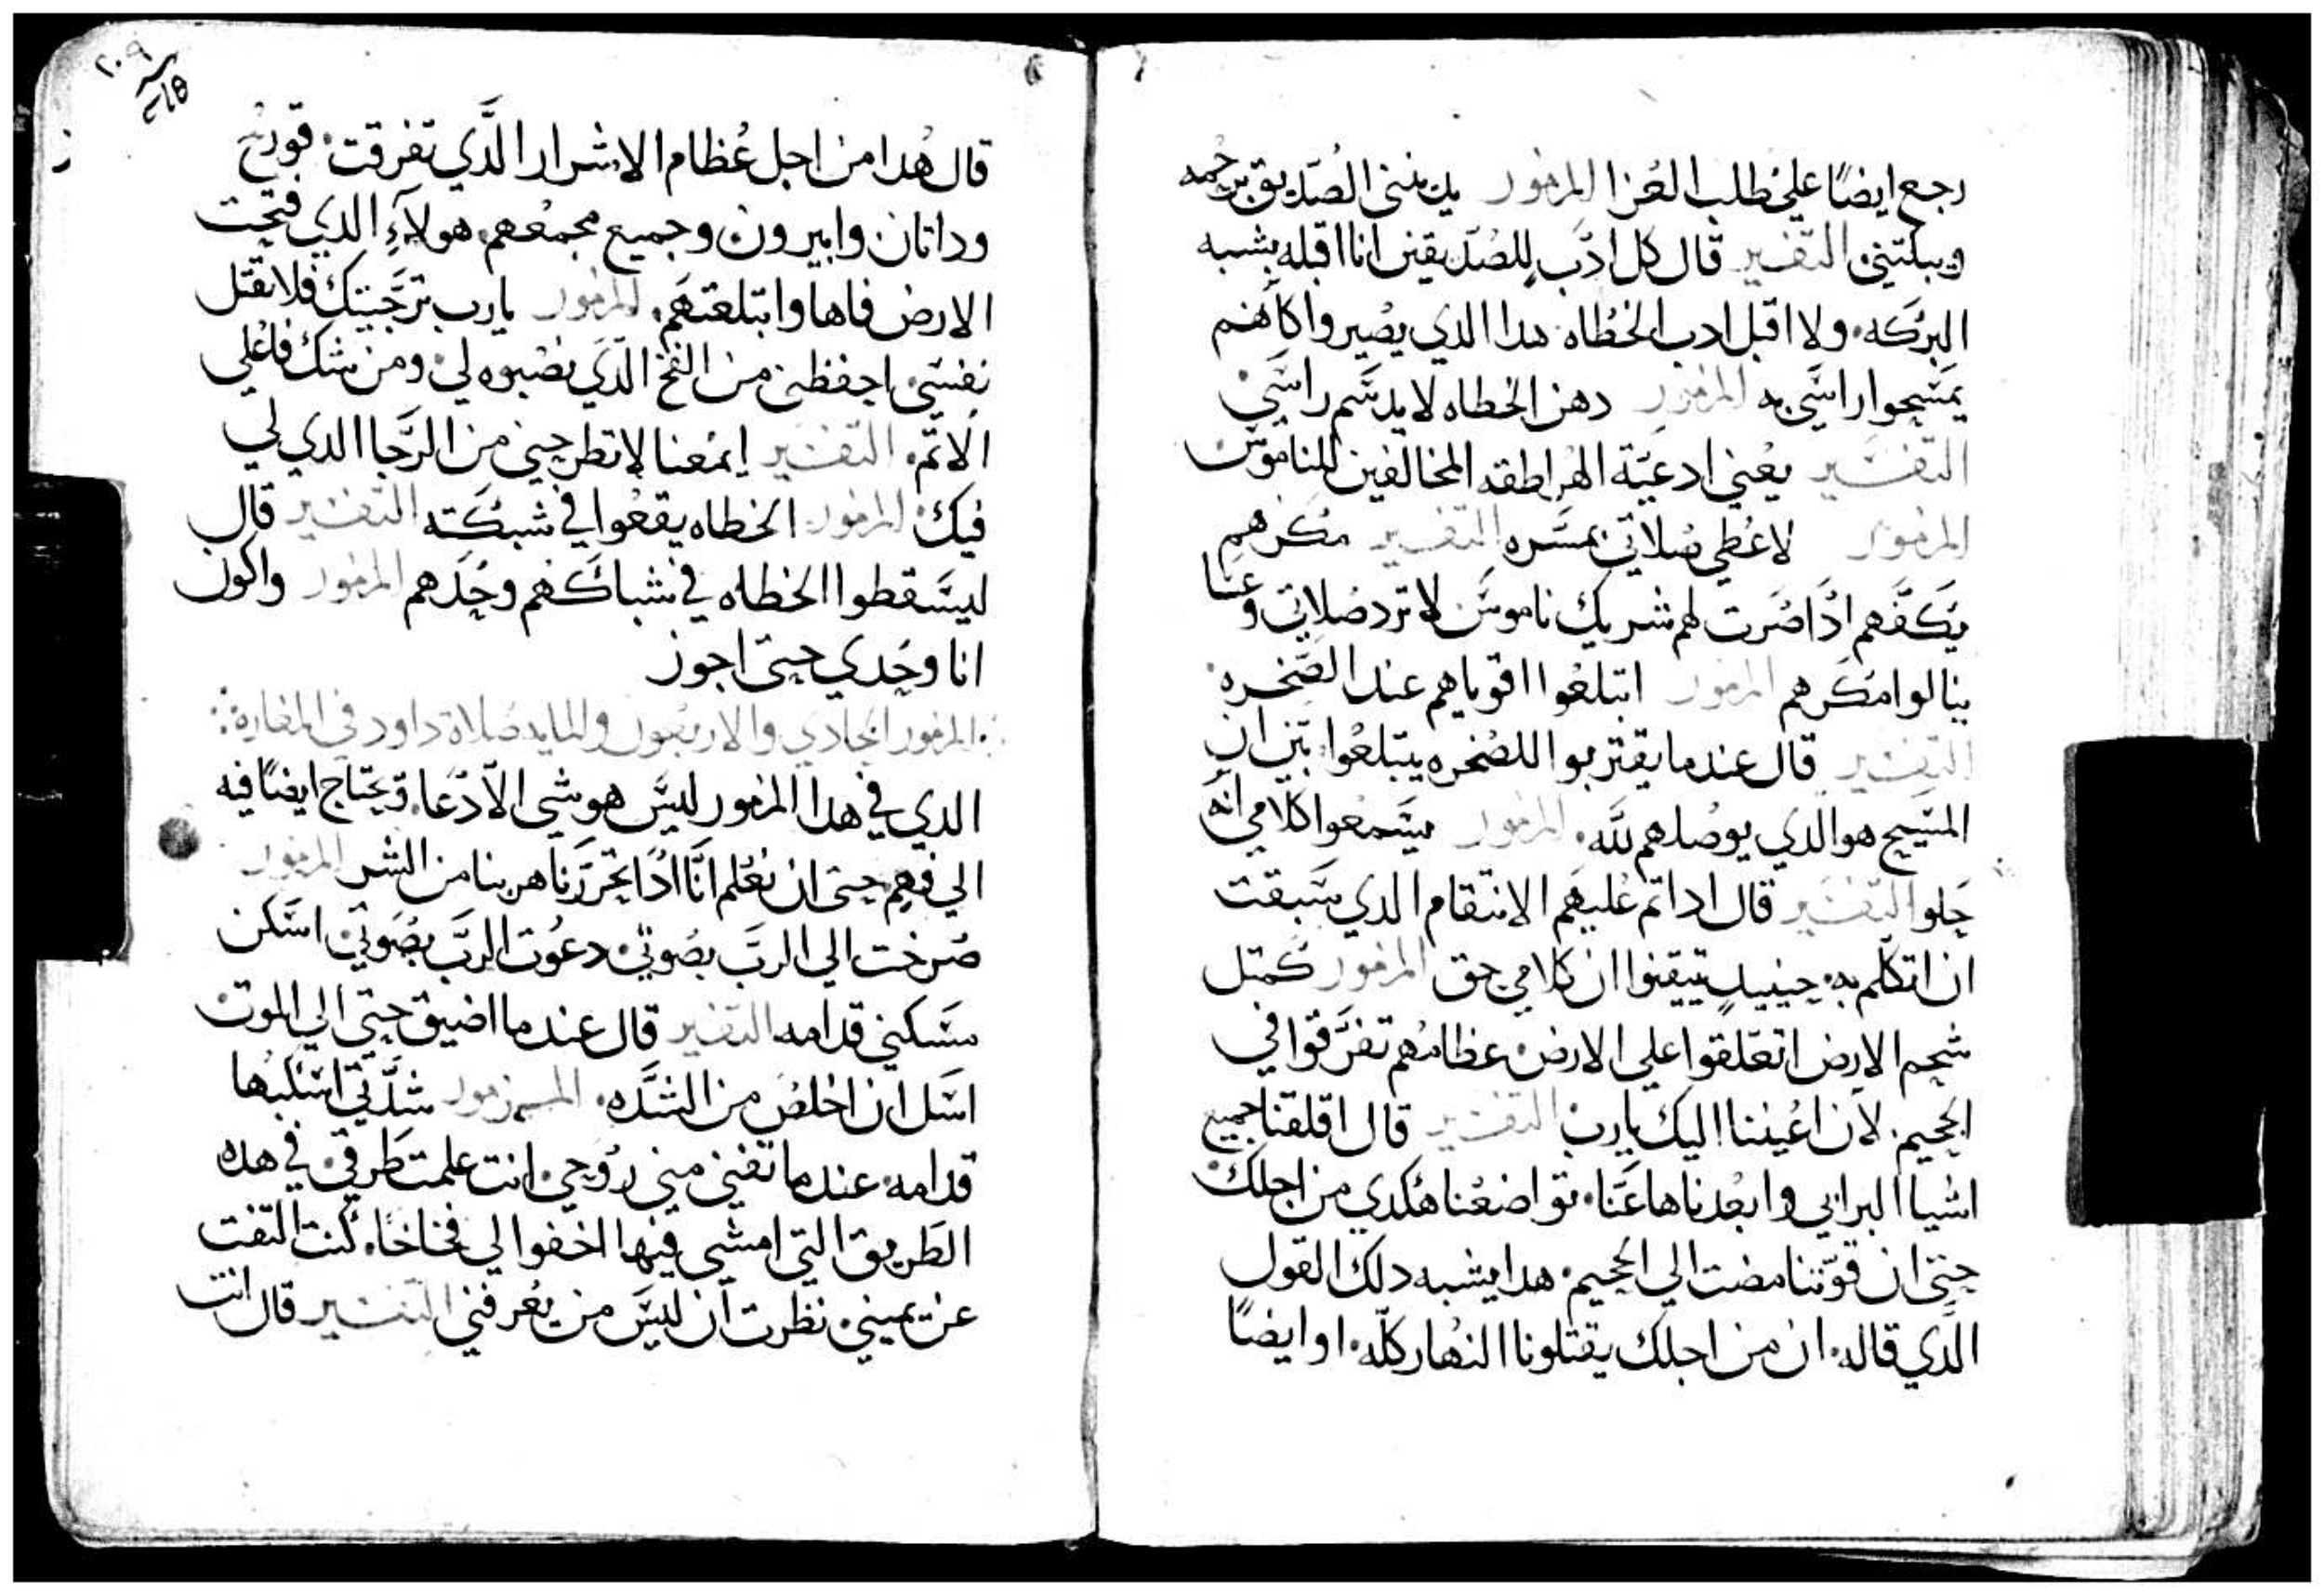 رجع ايضًا علي طلب العزا المزمور يدينني الصديق برحمه
ويبكتني التفسير قال كل ادب للصديقين انا اقبله بشبه
البركه ولا اقبل ادب الخطاه هدا الدي يصيروا كانهم
يمسحوا راسي به المزمور دهن الخطاه لا يدسم راسي
التفسير يعني ادعية الهراطقه المخالفين للناموس
المزمور لاعطي صلاتي بمسره التفسير مكرهم
يكفهم ادا صرت لهم شريك ناموس لا ترد صلاتي وعنا
ينالوا مكرهم المزمور ابتلعوا اقوياهم عند الصخره
التفسير قال عندما يقتربوا للصخره يبتلعوا بين ان
المسيح هو الدي يوصلهم لله المزمور يسمعوا كلامي انه
حلو التفسير قال ادا تم عليهم الانتقام الدي سبقت
ان اتكلم به حينيدٍ تيقنوا ان كلامي حق المزمور كمتل
شحم الارض اتعلقوا علي الارض عظامهم تفرقوا في
الجحيم لان اعيننا اليك يارب التفسير قال اقلقنا جميع
اشيا البراني وابعدناها عنا تواضعنا هكدي من اجلك
حتي ان قوتنا مضت الي الجحيم هدا يشبه دلك القول
الدي قاله ان من اجلك يقتلونا النهار كله او ايضًا
٢٠٩
قال هدا من اجل عظام الاشرار الدي تفرقت قورح
وداتان وابيرون وجميع مجمعهم هولآءِ الدي فتحت
الارض فاها وابتلعتهم المزمور يارب ترجيتك فلا تقتل
نفسي احفظني من الفخ الدي نصبوه لي ومن شك فاعلي
الاتم التفسير امعنا لا تطرحني من الرجا الدي لي
فيك المزمور الخطاه يقعوا في شبكته التفسير قال
ليسقطوا الخطاه في شباكهم وحدهم المزمور واكون
انا وحدي حتي اجوز
المزمور الحادي والاربعون والمايه صلاة داود في المغارة
الدي في هدا المزمور ليس هو شي الا دعا وتحتاج ايضًا فيه
الي فهم حتي ان نعلم انا ادا تحررنا هربنا من الشر المزمور
صرخت الي الرب بصوتي دعوت الرب بصوتي اسكن
مسكني قدامه التفسير قال عندما اضيق حتي الي الموت
اسل ان اخلص من الشده المزمور شدتي اسكبها
قدامه عندما تفني مني روحي انت علمت طرقي في هده
الطريق التي امشي فيها اخفوا لي فخاخا كنت التفت
عن يميني نظرت ان ليس من يعرفني التفسير قال انت